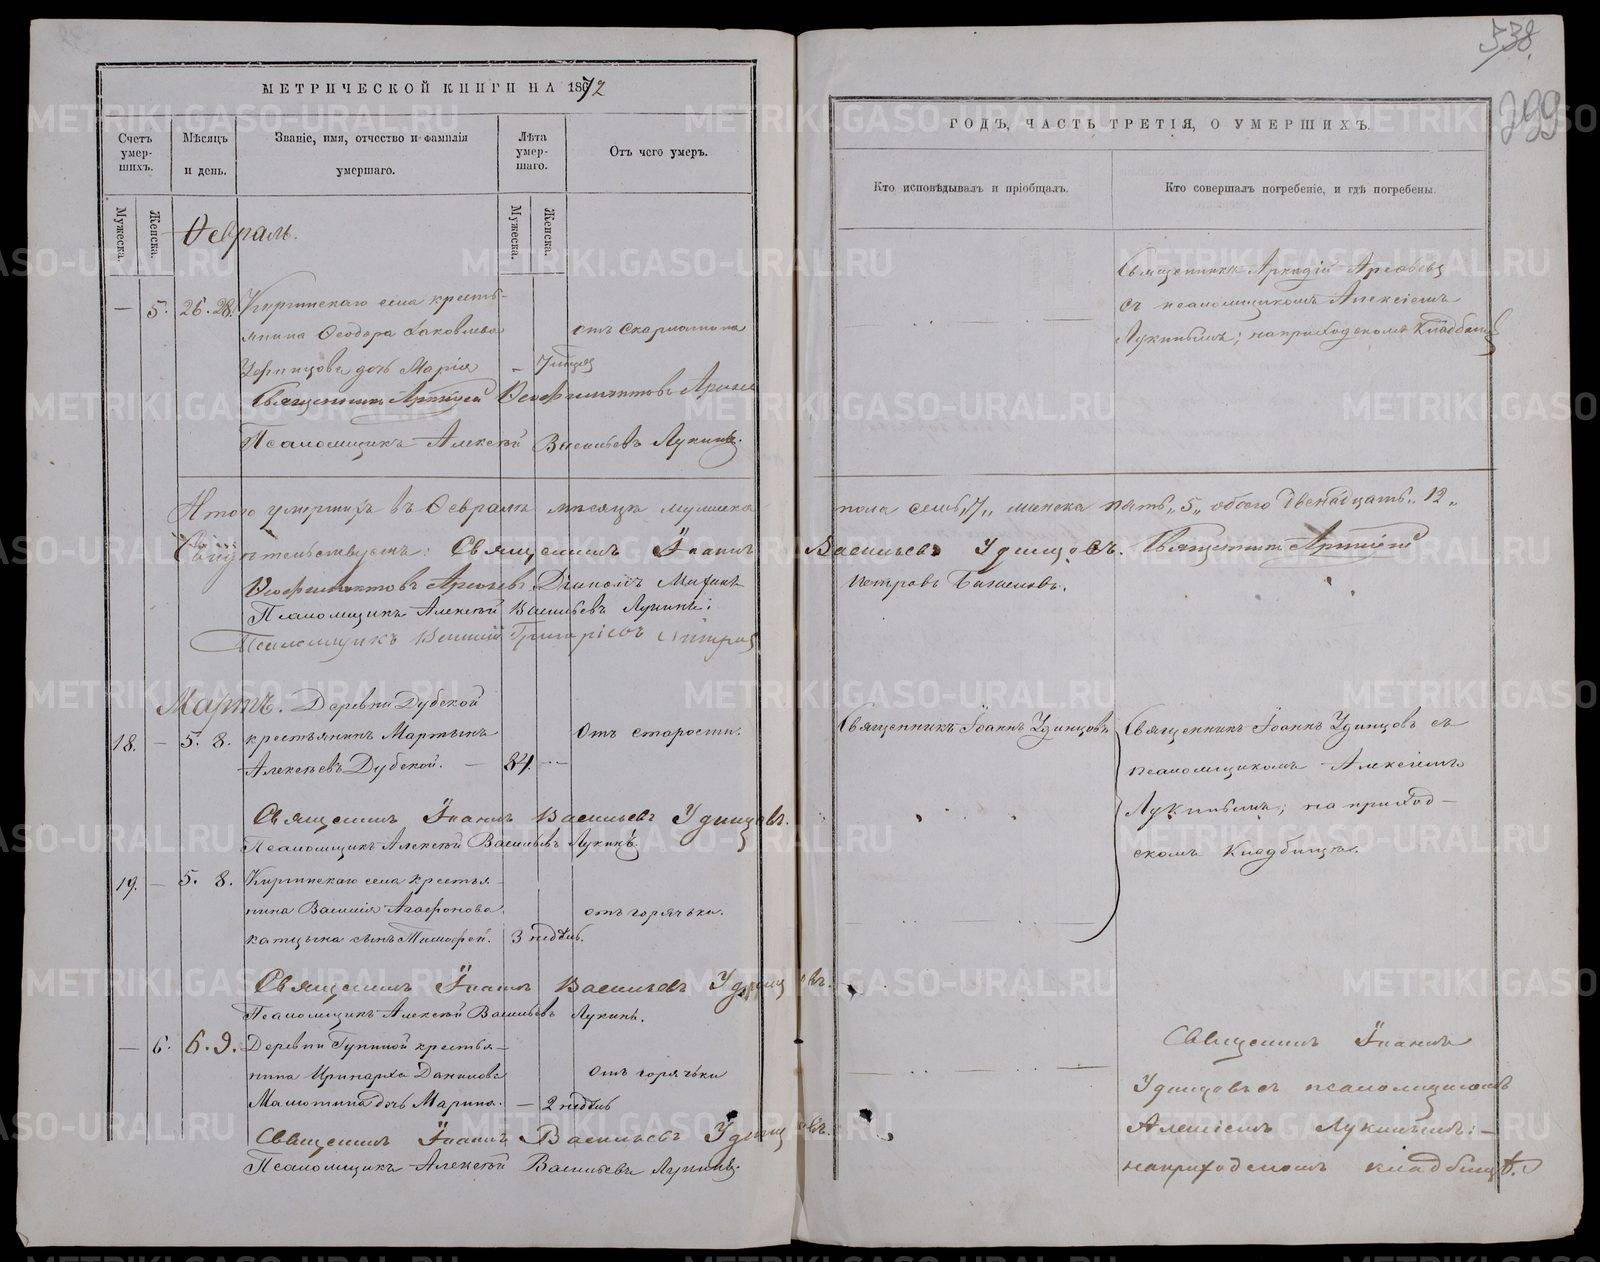 538.
299
МЕТРИЧЕСКОЙ КНИГИ НА 1872
ГОДЪ, ЧАСТЬ ТРЕТІЯ, О УМЕРШИХЪ.
Счетъ умер-шихъ.
Мужеска.
Женска.
Мѣсяцъ и день.
Званіе, имя, отчество и фамилія умершаго.
Лѣта умер-шаго.
Мужеска.
Женска.
Отъ чего умеръ.
Кто исповѣдывалъ и пріобщалъ.
Кто совершалъ погребеніе, и гдѣ погребены.
Февраль.
— 5. 26. 28. Киргинскаго села кресть-
янина Ѳеодора Іаковлева
дочь Марія — 7 мѣсяц
отъ скарлатина
Священникъ Аркадій
съ псаломщикомъ Алексіемъ
Лукинымъ; на приходскомъ кладбищѣ
Священникъ
Псаломщикъ Алексѣй Васильевъ Лукинъ.
Итого умершихъ въ Февралѣ мѣсяцѣ мужеска
пола семь „7„ женска пять „5„ обоего двенадцать „12„
Свидѣтельствуютъ: Священникъ Іоаннъ Васильевъ Удинцовъ. Священникъ
Діаконъ
Петровъ
Псаломщикъ Алексѣй Васильевъ Лукинъ:
Псаломщикъ Василій Григоріевъ
Мартъ.
18. — 5. 8. Деревни Дубской
крестьянинъ Мартынъ
Алексѣевъ Дубской. — 84. —
Отъ старости.
Священникъ Іоаннъ Удинцовъ
Священникъ Іоаннъ Удинцовъ съ
псаломщикомъ Алексіемъ
Лукинымъ; на приход-
скомъ кладбищѣ.
Священникъ Іоаннъ Васильевъ Удинцовъ.
Псаломщикъ Алексѣй Васильевъ Лукинъ.
19. — 5. 8. Киргинскаго села крестья-
нина Василія Агафонова
сынъ Тимофей. 3 недѣль.
отъ горячьки.
Священникъ Іоаннъ Васильевъ Удинцовъ.
Псаломщикъ Алексѣй Васильевъ Лукинъ.
— 6. 6. 9. Деревни Гуниной крестья-
нина Иринарха Данилова
Малютина дочь Марина. — 2 недѣль
отъ горячьки
Священникъ Іоаннъ
Удинцовъ съ псаломщикомъ
Алексіемъ Лукинымъ: —
на приходскомъ кладбищѣ.
Священникъ Іоаннъ Васильевъ Удинцовъ.
Псаломщикъ Алексѣй Васильевъ Лукинъ.
METRIKI.GASO-URAL.RU